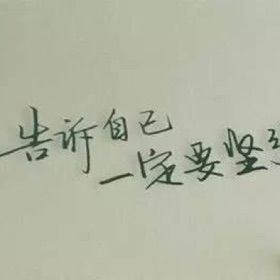 告诉自己
一定要坚